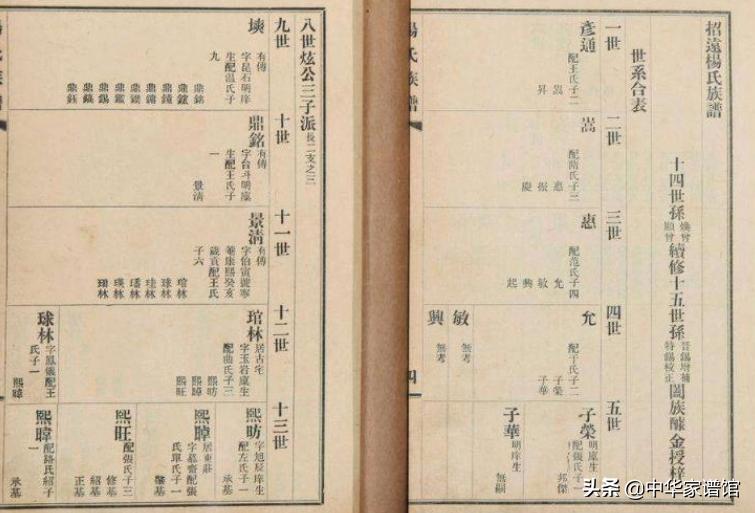 招遠楊氏族譜
十四世孫
續修十五世孫
闔族醵金授梓
世系合表
一世
彥通
配王氏子二
嵩
昇
二世
嵩
配隋氏子三
惠
振
慶
三世
惠
配范氏子四
允
敏
興
起
四世
允
配于氏子二
子榮
子華
敏
無考
興
無考
五世
子榮
明庠生
配張氏子一
邦傑
子華
明庠生
無嗣
楊氏族譜
四
八世炫公三子派
長二支之三
九世
埮
有傳
字昆石明庠
生配溫氏子
九
鼎銘
十世
鼎銘
有傳
字台斗明廩
生配王氏子
一
景淸
十一世
景淸
有傳
歲貢配王氏
子六
琯林
球林
珪林
璠林
瑛林
十二世
琯林
居古宅
字玉岩庠生
配曲氏子三
熙昉
熙暐
熙旺
球林
字鳳儀配王
氏子一
熙暐
十三世
熙昉
字旭辰庠生
配左氏子一
承基
熙暐
居東莊
字慕齋配張
氏單氏子一
肇基
熙旺
配張氏子三
修基
紹基
正基
熙暐
配路氏紹子
一
承基
头条 @中华家谱馆